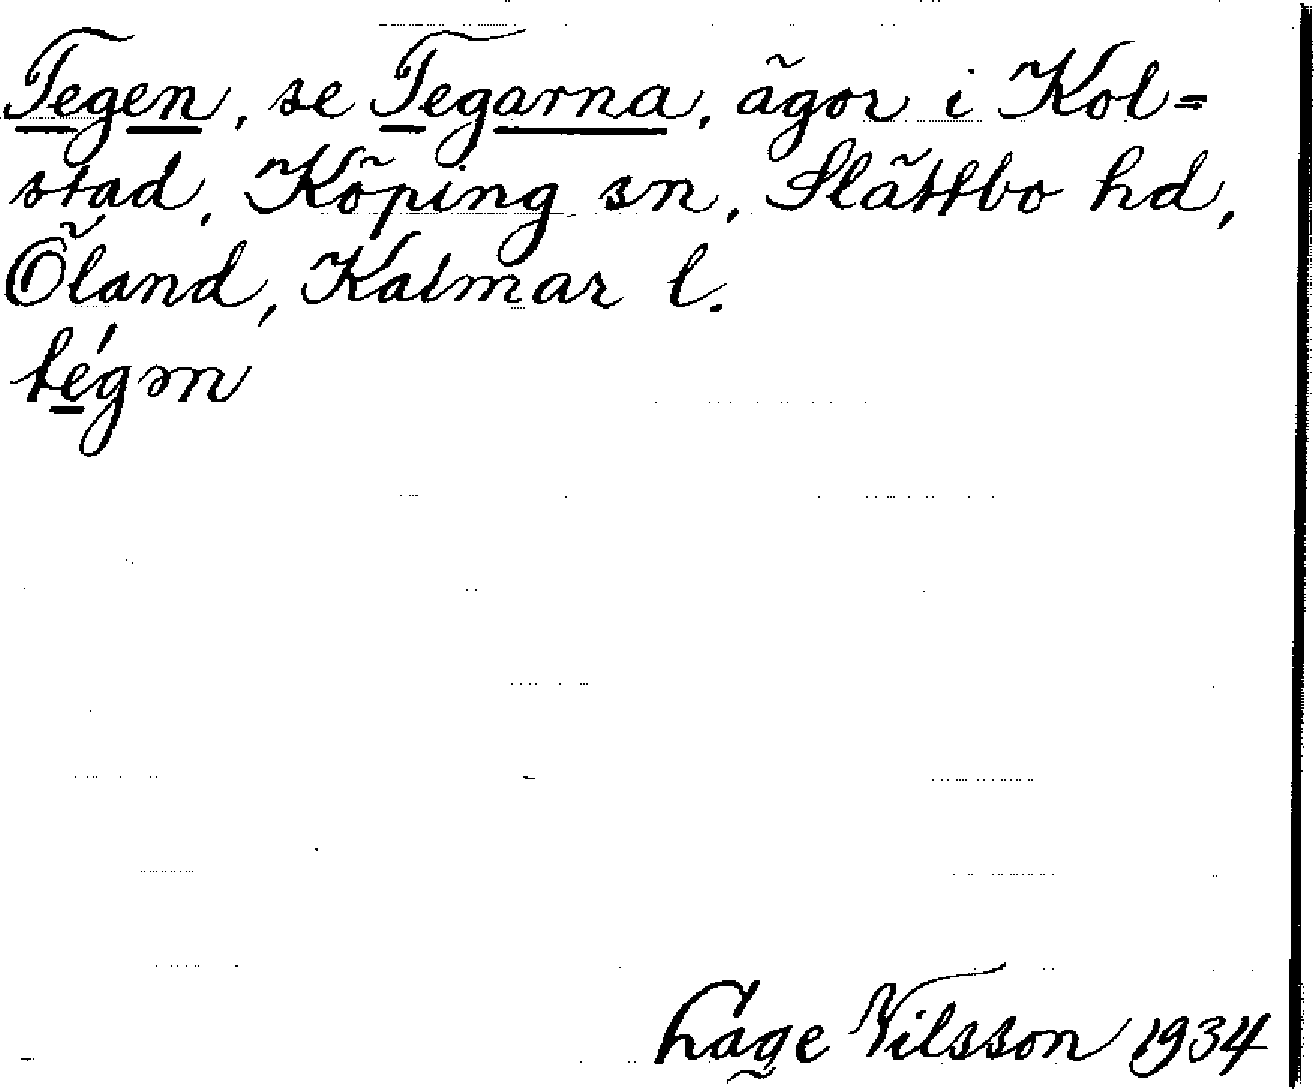 Tegen, se Tegarna, ägor i Kol=
stad, Köping sn, Slättbo hd,
Öland, Kalmar l.
tégən
Låge Nilsson 1934